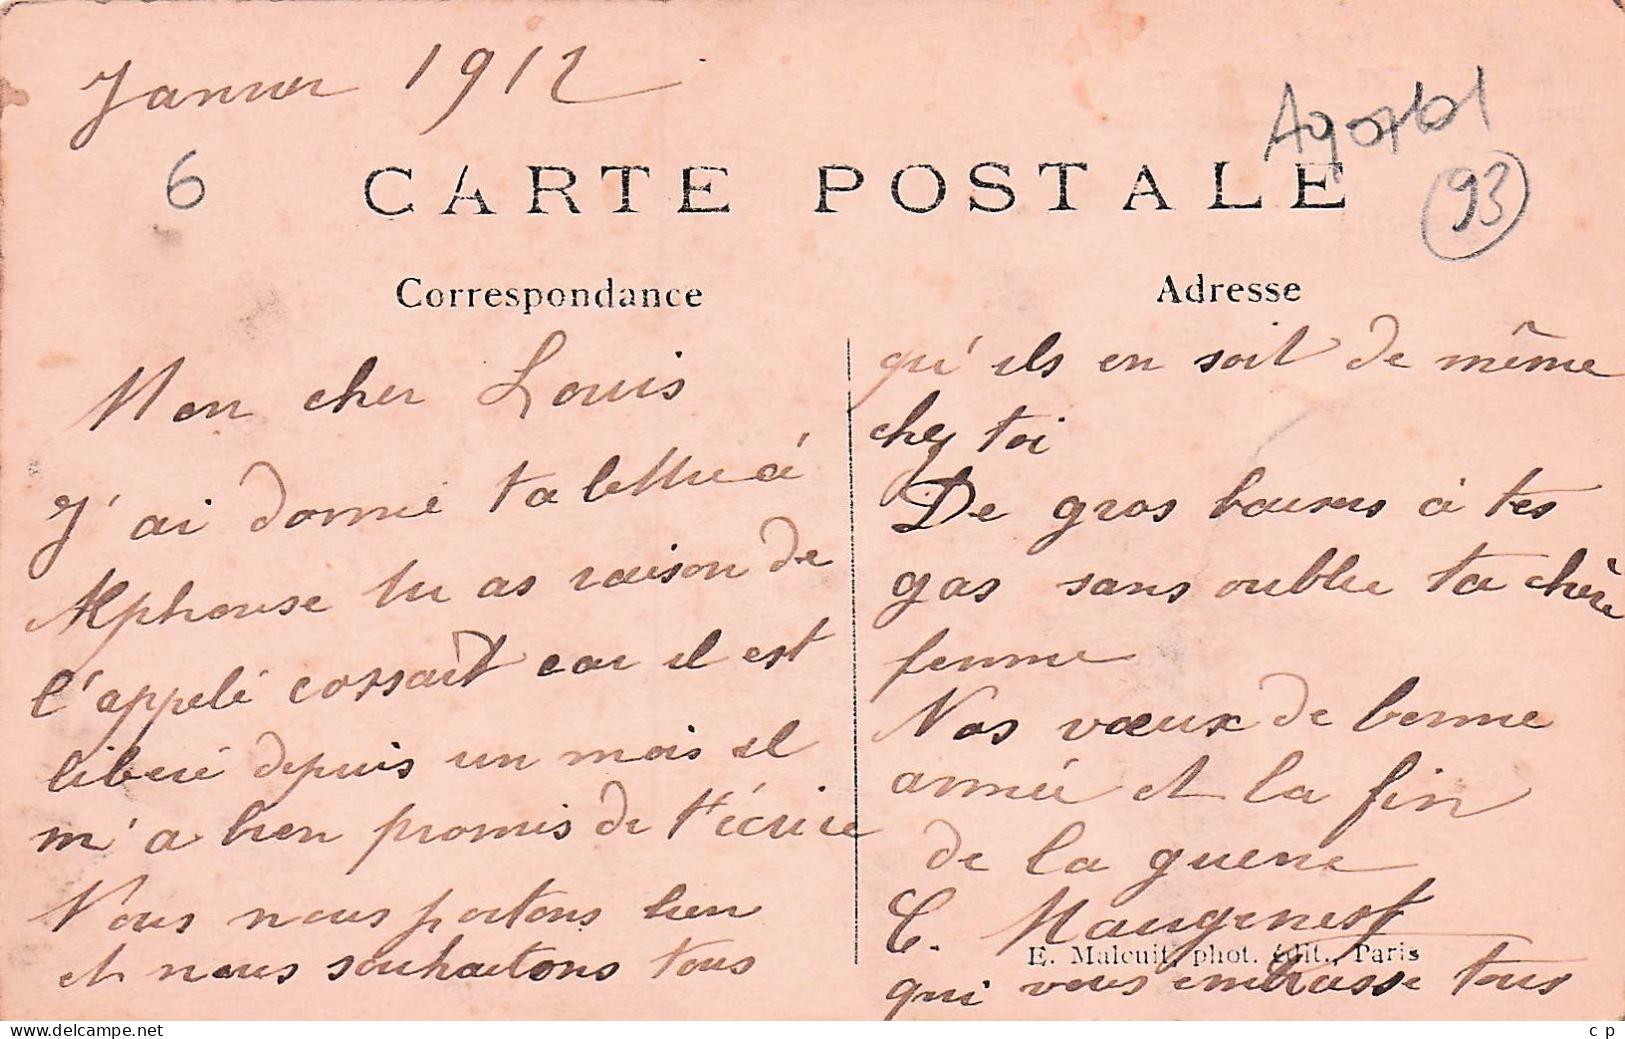 Janvier 1912
6
(93)
CARTE POSTALE
Correspondance
Adresse
Mon cher Louis
J'ai donné ta lettre à
Alphonse tu as raison de
l'appelé cossart car il est
libéré depuis un mois il
m'a bien promis de t'écrire
Nous nous portons bien
et nous souhaitons tous
qu'ils en soit de même
chez toi
De gros baisers à tes
gas sans oublier ta chère
femme
Nos vœux de bonne
année et la fin
de la guerre
C. Maugenest
E. Malcuit, phot. édit., Paris
qui vous embrasse tous
c p